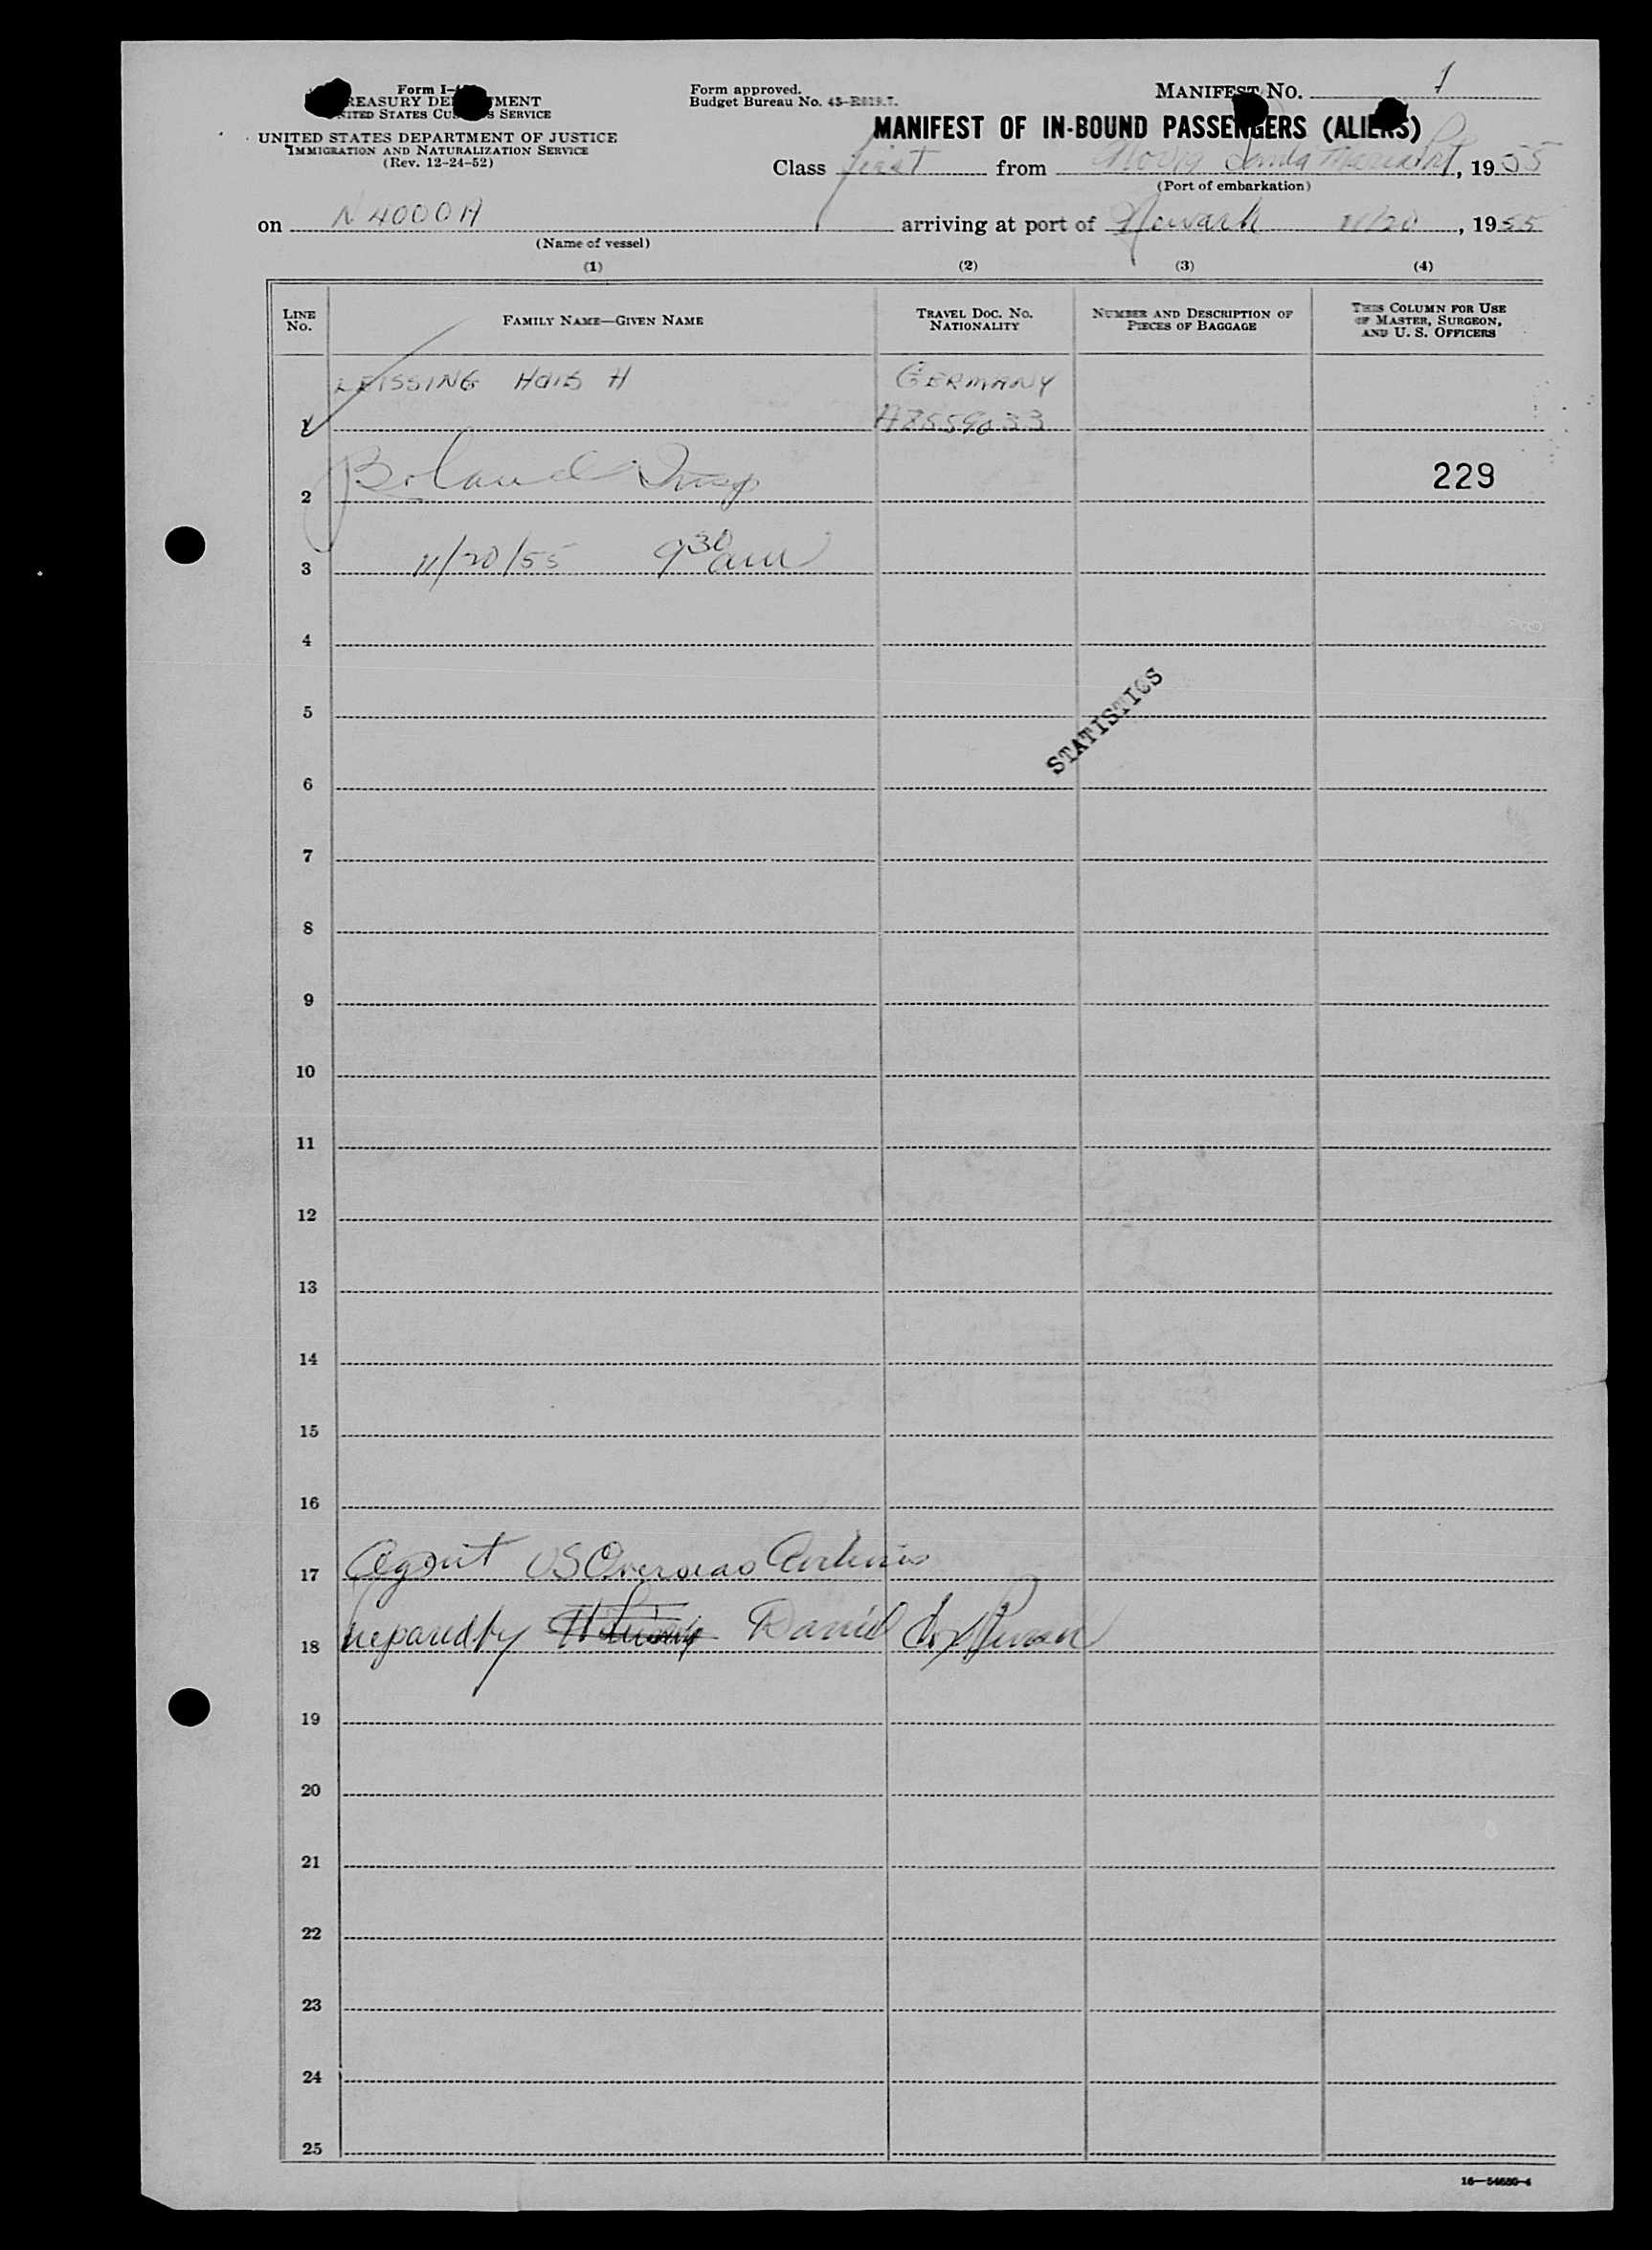 Form I-
TREASURY DEPARTMENT
UNITED STATES CUSTOMS SERVICE
UNITED STATES DEPARTMENT OF JUSTICE
IMMIGRATION AND NATURALIZATION SERVICE
(Rev. 12-24-52)
Form approved.
Budget Bureau No. 43-R019.7.
MANIFEST NO. 1
MANIFEST OF IN-BOUND PASSENGERS (ALIENS)
Class first from Santa Maria, 1955
(Port of embarkation)
on N4000A arriving at port of Newark 11/20, 1955
(Name of vessel)
(1) (2) (3) (4)
LINE NO.
FAMILY NAME—GIVEN NAME
TRAVEL DOC. NO. NATIONALITY
NUMBER AND DESCRIPTION OF PIECES OF BAGGAGE
THIS COLUMN FOR USE OF MASTER, SURGEON, AND U. S. OFFICERS
LEISSING H GERMANY
1 A8559033
2 Boland Insp 229
3 11/20/55 9 30 am
4
5
STATISTICS
6
7
8
9
10
11
12
13
14
15
16
17 Agent US Overseas Airlines
18 prepared by Daniel
19
20
21
22
23
24
25
16—54680-4